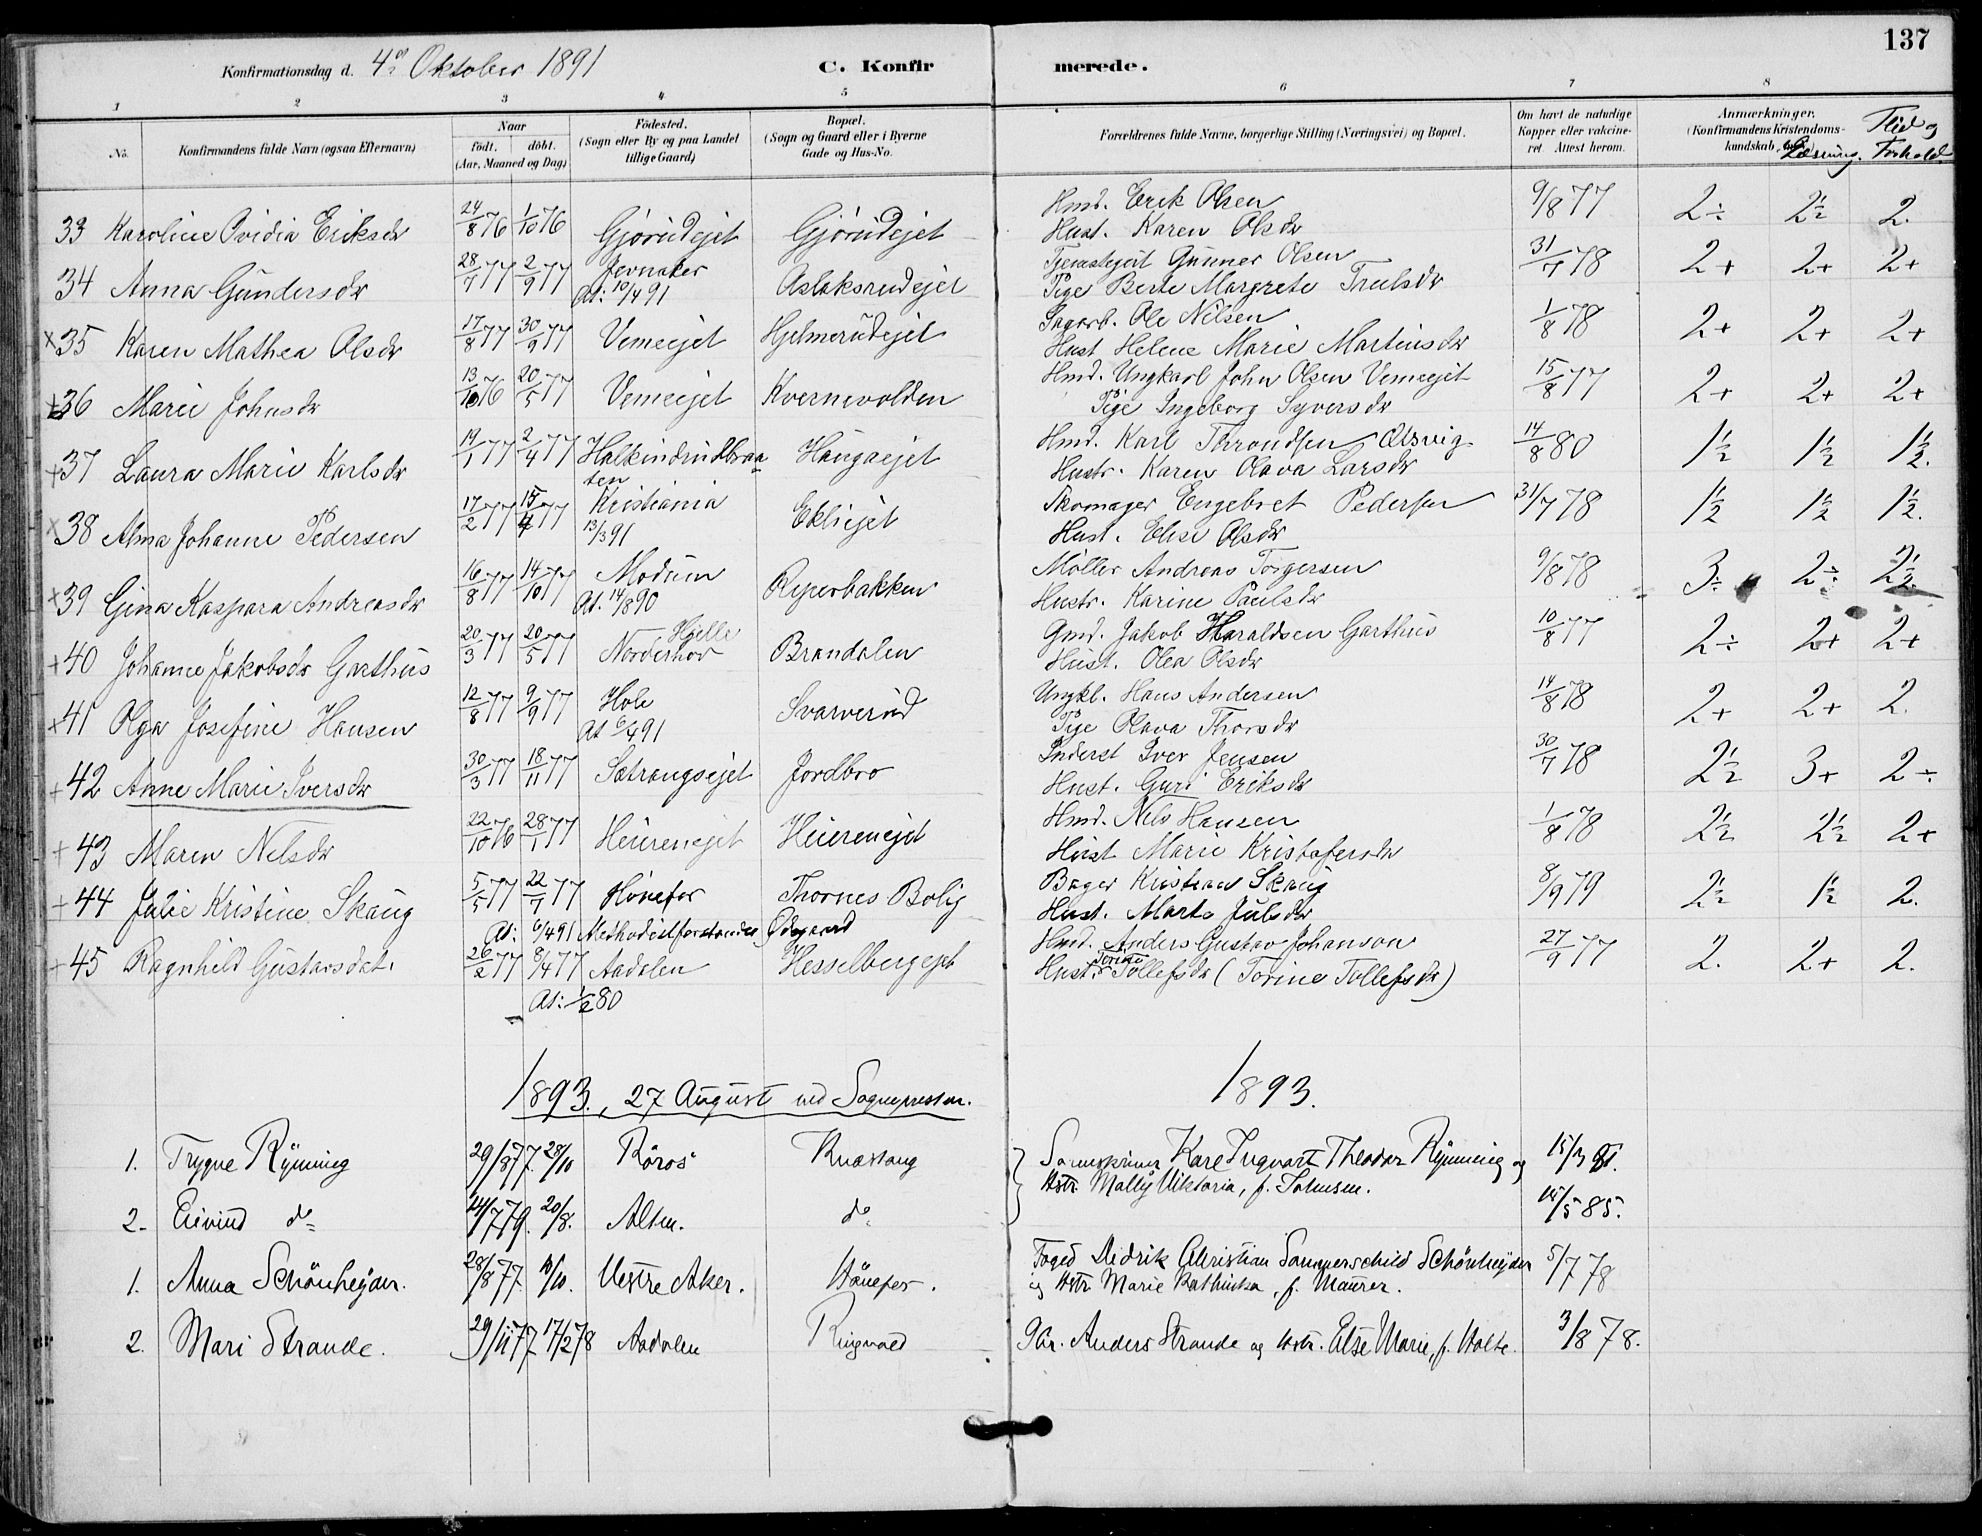 137
Konfirmationsdag d. 4de Oktober 1891 C. Konfirmerede.
1 2 3 4 5 6 7 8
No. Konfirmandens fulde Navn (ogsaa Efternavn) Naar født. døbt. (Aar, Maaned og Dag) Fødested. (Sogn eller By og paa Landet tillige Gaard) Bopæl. (Sogn og Gaard eller i Byerne Gade og Hus-No. Forældrenes fulde Navne, borgerlige Stilling (Næringsvei) og Bopæl. Om havt de naturlige Kopper eller vakcineret. Attest herom. Anmærkninger. (Konfirmandens Kristendomskundskab, Læsning. Flid og Forhold.
33 Karoline Ovidia Eriksdr 24/8 76 1/10 76 Gjørudejet Gjørudejet Hmd. Erik Olsen 9/8 77 2÷ 2½ 2.
Hust. Karen Olsdr
34 Anna Gundersdr 28/7 77 2/9 77 Jevnaker Aslaksrudejet Tjenestegut Gunner Olsen 31/7 78 2+ 2+ 2+
At. 10/4 91 Pige Berte Margrete Trulsdr
x 35 Karen Mathea Olsdr 17/8 77 30/9 77 Vemeejet Hjelmerudejet Sagarb. Ole Nilsen 1/8 78 2+ 2+ 2+
Hust Helene Marie Martinsdr
+ 36 Marie Johnsdr 13/10 76 20/5 77 Vemeejet Kvernevolden Hmd. Ungkarl John Olsen Vemeejet 15/8 77 2+ 2+ 2+
Pige Ingeborg Syversdr
+ 37 Laura Marie Karlsdr 19/1 77 2/4 77 Halkinrudbraaten Haugaejet Hmd. Karl Throndsen Olsvig 14/8 80 1½ 1½ 1½.
Hustr. Karen Olava Larsdr
x 38 Alma Johanne Pedersen 17/2 77 15/4 77 Kristiania Ekliejet Skomager Engebret Pedersen 31/7 78 1½ 1½ 1½.
13/3 91 Hust. Elise Olsdr
x 39 Gina Kaspara Andreasdr 16/8 77 14/10 77 Modum Ryperbakken Møller Andreas Torgersen 9/8 78 3÷ 2÷ 2½
At. 14/8 90 Hustr. Karine Paulsdr
+ 40 Johanne Jakobsdr Garthus 20/3 77 20/5 77 Hjelle Norderhov Brandalen Gmd. Jakob Haraldsen Garthus 10/8 77 2÷ 2+ 2+
Hust. Olea Olsdr
x 41 Olga Josefine Hansen 12/8 77 9/9 77 Hole Svarverud Ungkl. Hans Andersen 14/8 78 2+ 2+ 2.
At 6/4 91 Pige Olava Thorsdr
+ 42 Anne Marie Iversdr 30/3 77 18/11 77 Sætrangsejet Jordbro Inderst Iver Jensen 30/7 78 2½ 3+ 2÷
Hust. Guri Eriksdr
+ 43 Maren Nilsdr 22/10 76 28/1 77 Heierenejet Heierenejet Hmd. Nils Hansen 1/8 78 2½ 2½ 2+
Hust Marie Kristofersdr
+ 44 Julie Kristine Skaug 5/5 77 22/7 77 Hönefos Thornes Bolig Bager Kristian Skaug 8/9 79 2½ 1½ 2.
At: 6/4 91 Methodistforstander Ødegaard Hust. Marte Julsdr
+ 45 Ragnhild Gustavsdat. 26/2 77 8/4 77 Aadalen Hesselbergejet Hmd. Anders Gustav Johanson 27/9 77 2. 2+ 2.
At: 1/2 80 Hust. Torine Tollefsdr (Torine Tollefsdr)
1893., 27 August ved Sognepresten. 1893.
1. Trygve Rynning 29/8 77. 28/10 Röros Knæstang Karl Ingvart Theodor Rynning og 15/3 81.
Hstr. Mally Viktoria, f.
2. Eivind do 14/7 79. 20/8. Alten. do 15/5 85.
1. Anna Schönheyder. 28/8 77. 10/10. Vestre Aker. Hönefos. Foged Didrik Christian Sommerschild Schönheyder 5/7 78
og Hstr. Marie Kathinka, f. Maurer.
2. Mari Strande. 29/11 77 17/2 78 Aadalen Ringvold Gbr. Anders Strande og Hstr. Else Marie, f. Holte. 3/8 78.